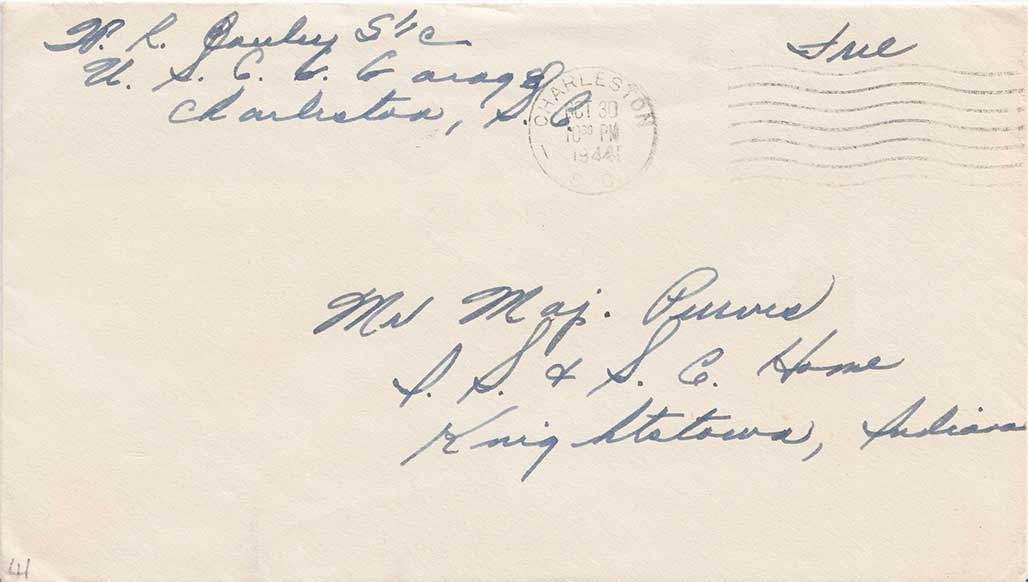 W. R. Pauley S 1/c
U. S. C. G. Garage
Charleston, S. C.
Free
CHARLESTON
OCT 30
10 30 PM
1944
S. C.
Mr Maj. Purvis
I. S. & S. C. Home
Knightstown, Indiana
41